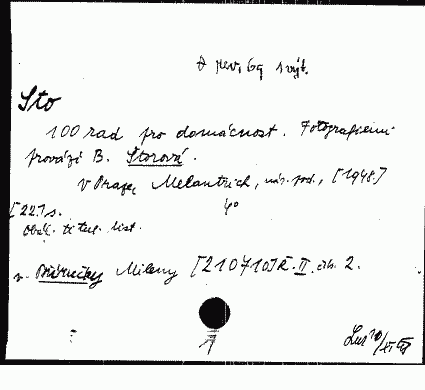 rev. 69 1 výt.
Sto
100 rad pro domácnost. Fotografiemi
provází B. Štorová.
V Praze, Melantrich, nár. pod., [1948.]
[22] s. 4°
Obál. titul. list.
v. Příručky Mileny [210710] R. II. čís. 2.